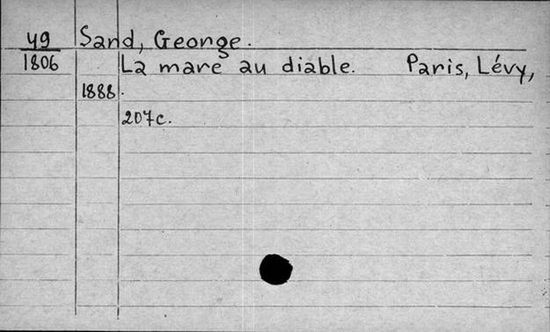 49 Sand, George.
1806 La mare au diable. Paris, Lévy,
1888.
207c.